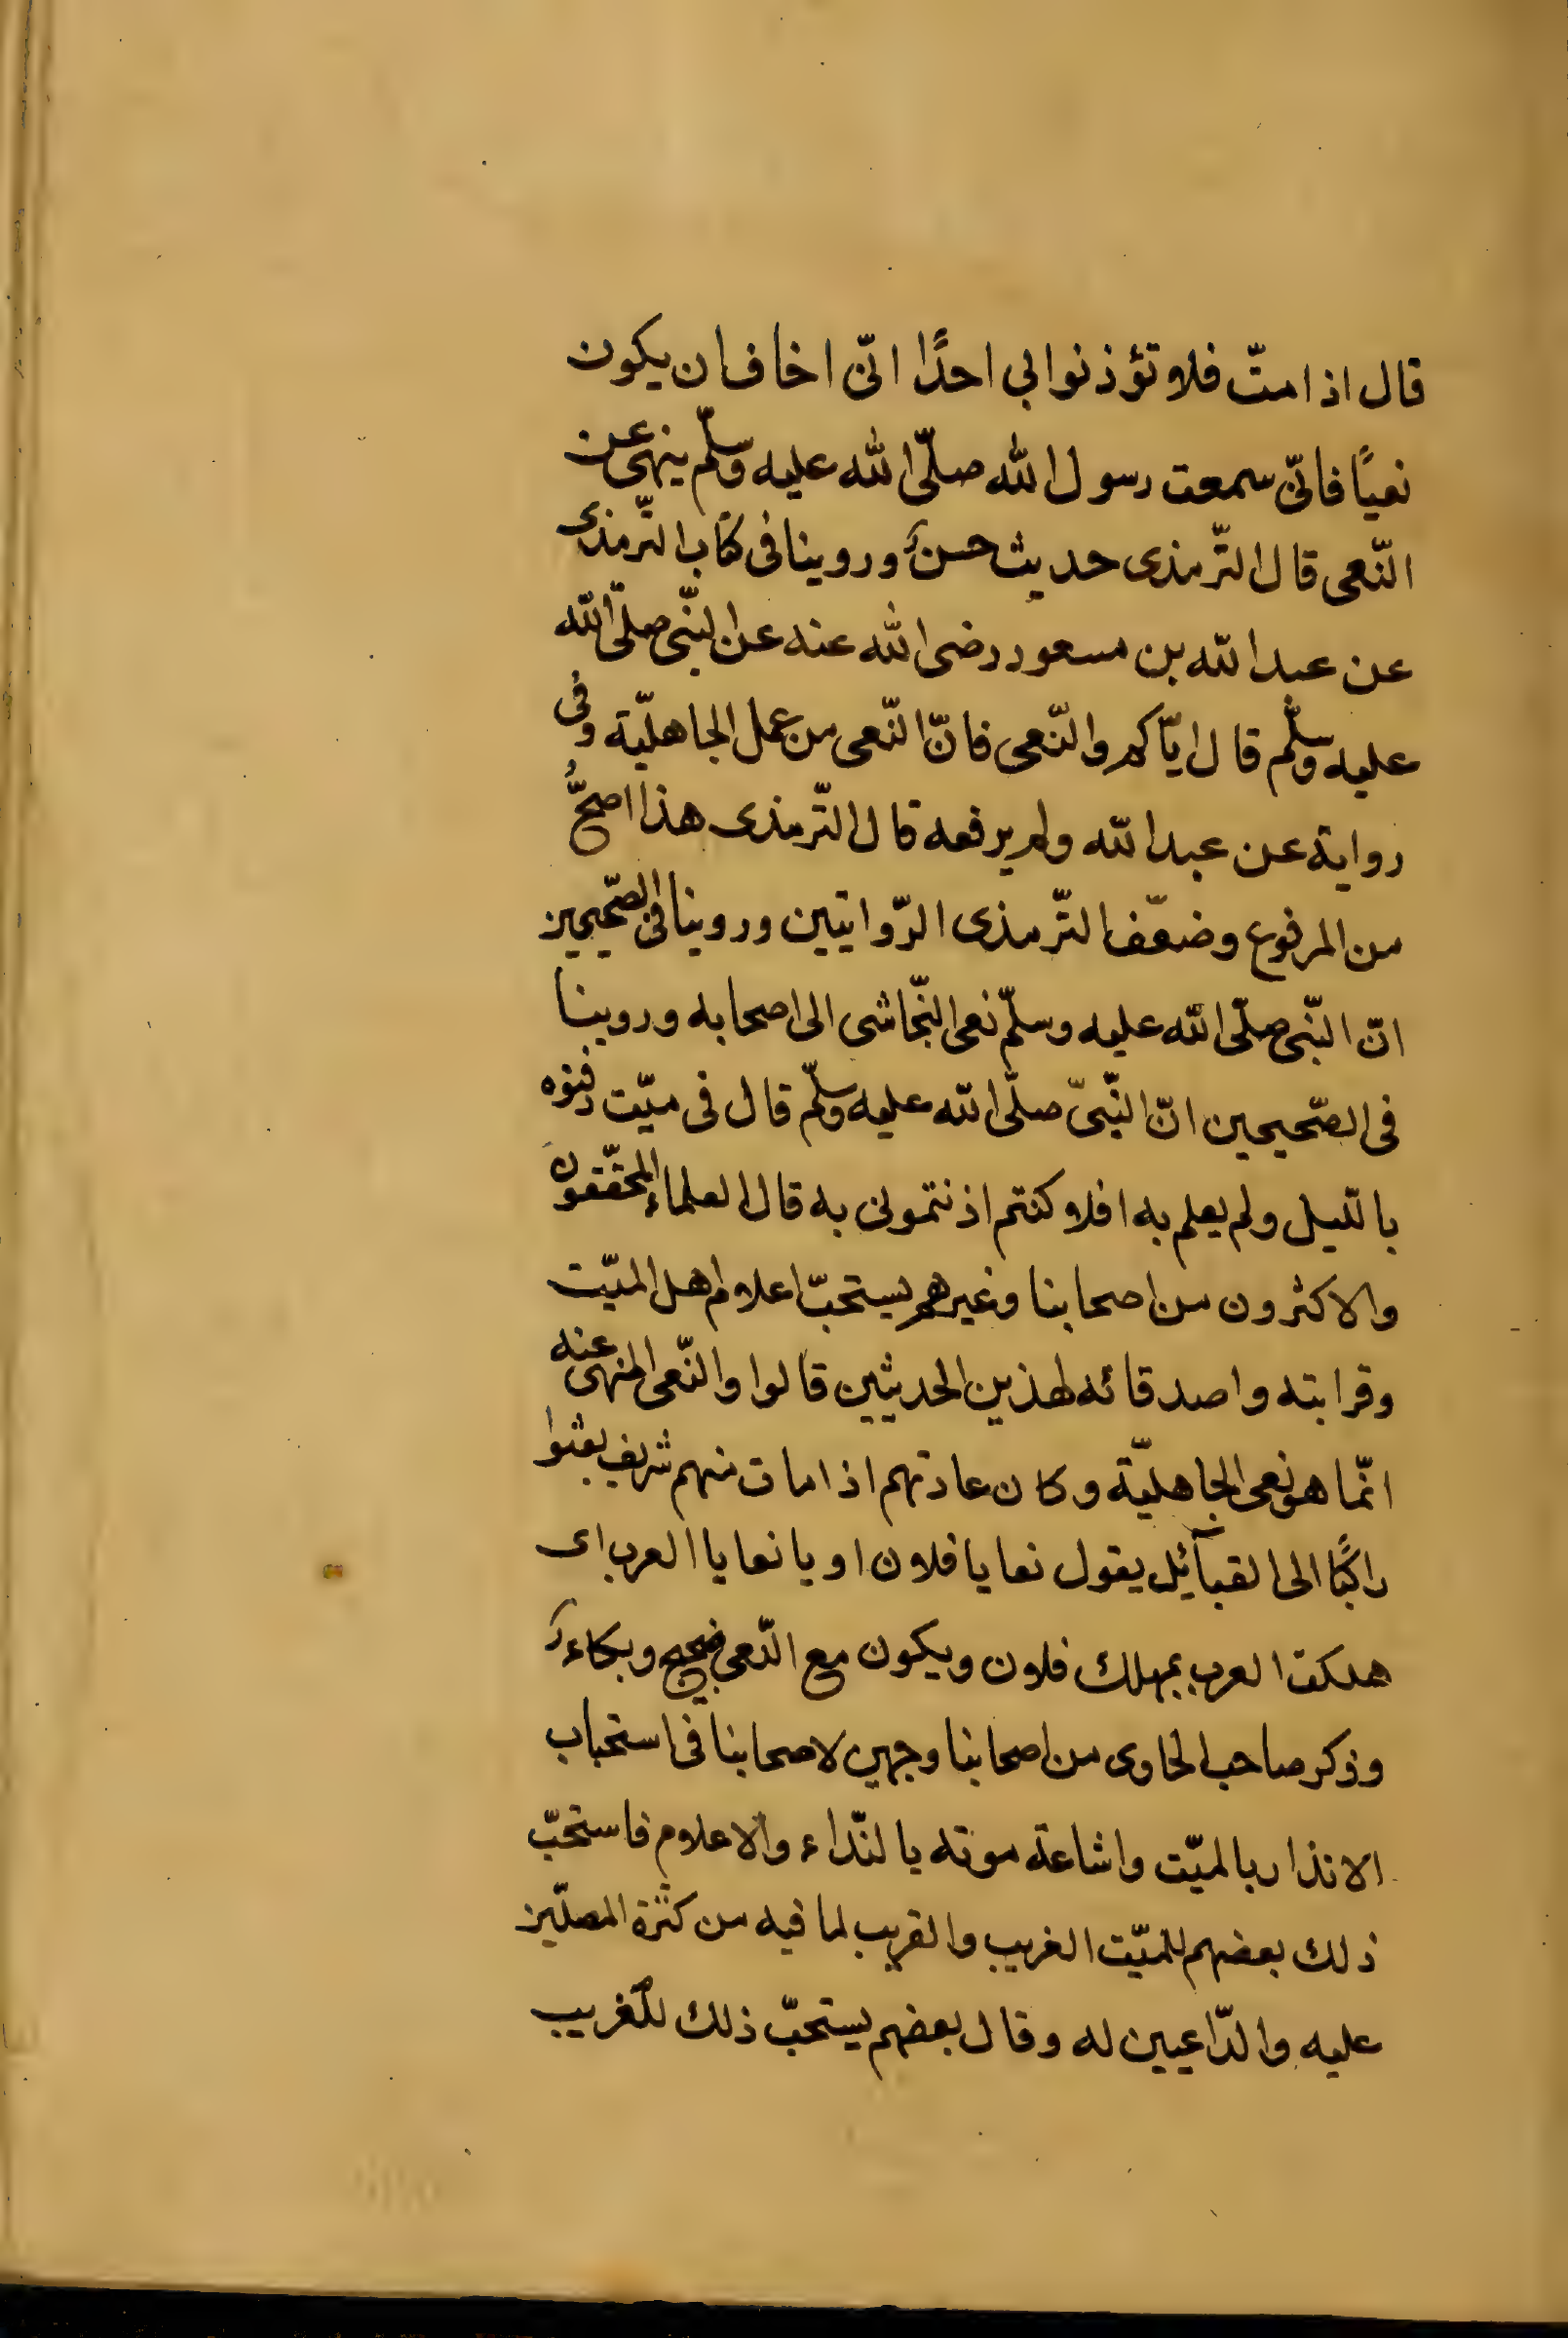 قال اذا متّ فلا تؤذنوا بي احدًا انّى اخاف ان يكون
نعيًا فانّى سمعت رسول الله صلّى الله عليه وسلّم ينهى عن
النّعى قال التّرمذى حديث حسنٌ وروينا فى كتاب التّرمذى
عن عبد الله بن مسعود رضى الله عنه عن النّبى صلّى الله
عليه وسلّم قال ايّاكم والنّعى فانّ النّعى من عمل الجاهليّة وفى
رواية عن عبد الله ولم يرفعه قال التّرمذى هذا اصحُّ
من المرفوع وضعّف التّرمذى الرّوايتين وروينا فى الصّحيحين
انّ النّبى صلّى الله عليه وسلّم نعى النّجاشى الى اصحابه وروينا
فى الصّحيحين انّ النّبىّ صلّى الله عليه وسلّم قال فى ميّت دفنوه
بالليل ولم يعلم به افلا كنتم اذنتمونى به قال العلماء المحقّقون
والاكثرون من اصحابنا وغيرهم يستحبّ اعلام اهل الميّت
وقرابته واصدقائه لهذين الحديثين قالوا والنّعى المنهى عنه
انّما هو نعى الجاهليّة وكان عادتهم اذا مات منهم شريف بعثوا
راكبًا الى القبآئل يقول نعايا فلان او يا نعايا العرب اى
هلكت العرب بمهلك فلان ويكون مع النّعى ضجيج وبكاء
وذكر صاحب الحاوى من اصحابنا وجهين لاصحابنا فى استحباب
الانذار بالميّت واشاعة موته بالنّداء والاعلام فاستحبّ
ذلك بعضهم للميّت الغريب والقريب لما فيه من كثرة المصلّين
عليه والدّاعيين له وقال بعضهم يستحبّ ذلك للغريب